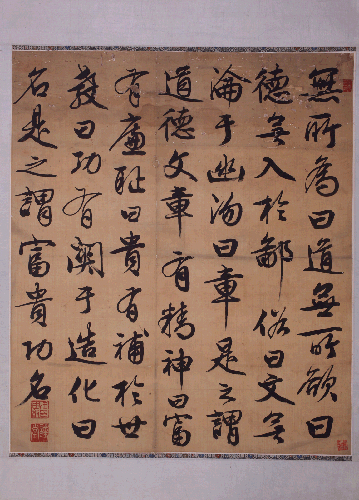 無所為曰道無所欲曰
德無入於鄙俗曰文無
淪于幽曰章是之謂
道德文章有精神曰富
有廉耻曰貴有補於世
教曰功有關于造化曰
名是之謂富貴功名